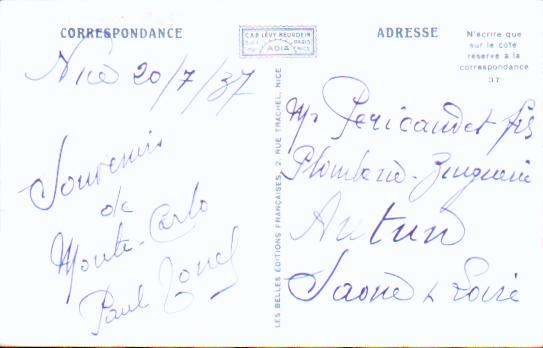 CORRESPONDANCE
CAP LÉVY NEURDEIN
PARIS
ADIA
NICE
ADRESSE
N'écrire que
sur le côté
réservé à la
correspondance
37
Nice 20/7/37
Souvenir
de
Monte-Carlo
Paul
LES BELLES ÉDITIONS FRANÇAISES, 2, RUE TRACHEL, NICE
Mr Pericaudet fils
Plomberie-Zinguerie
Autun
Saone & Loire